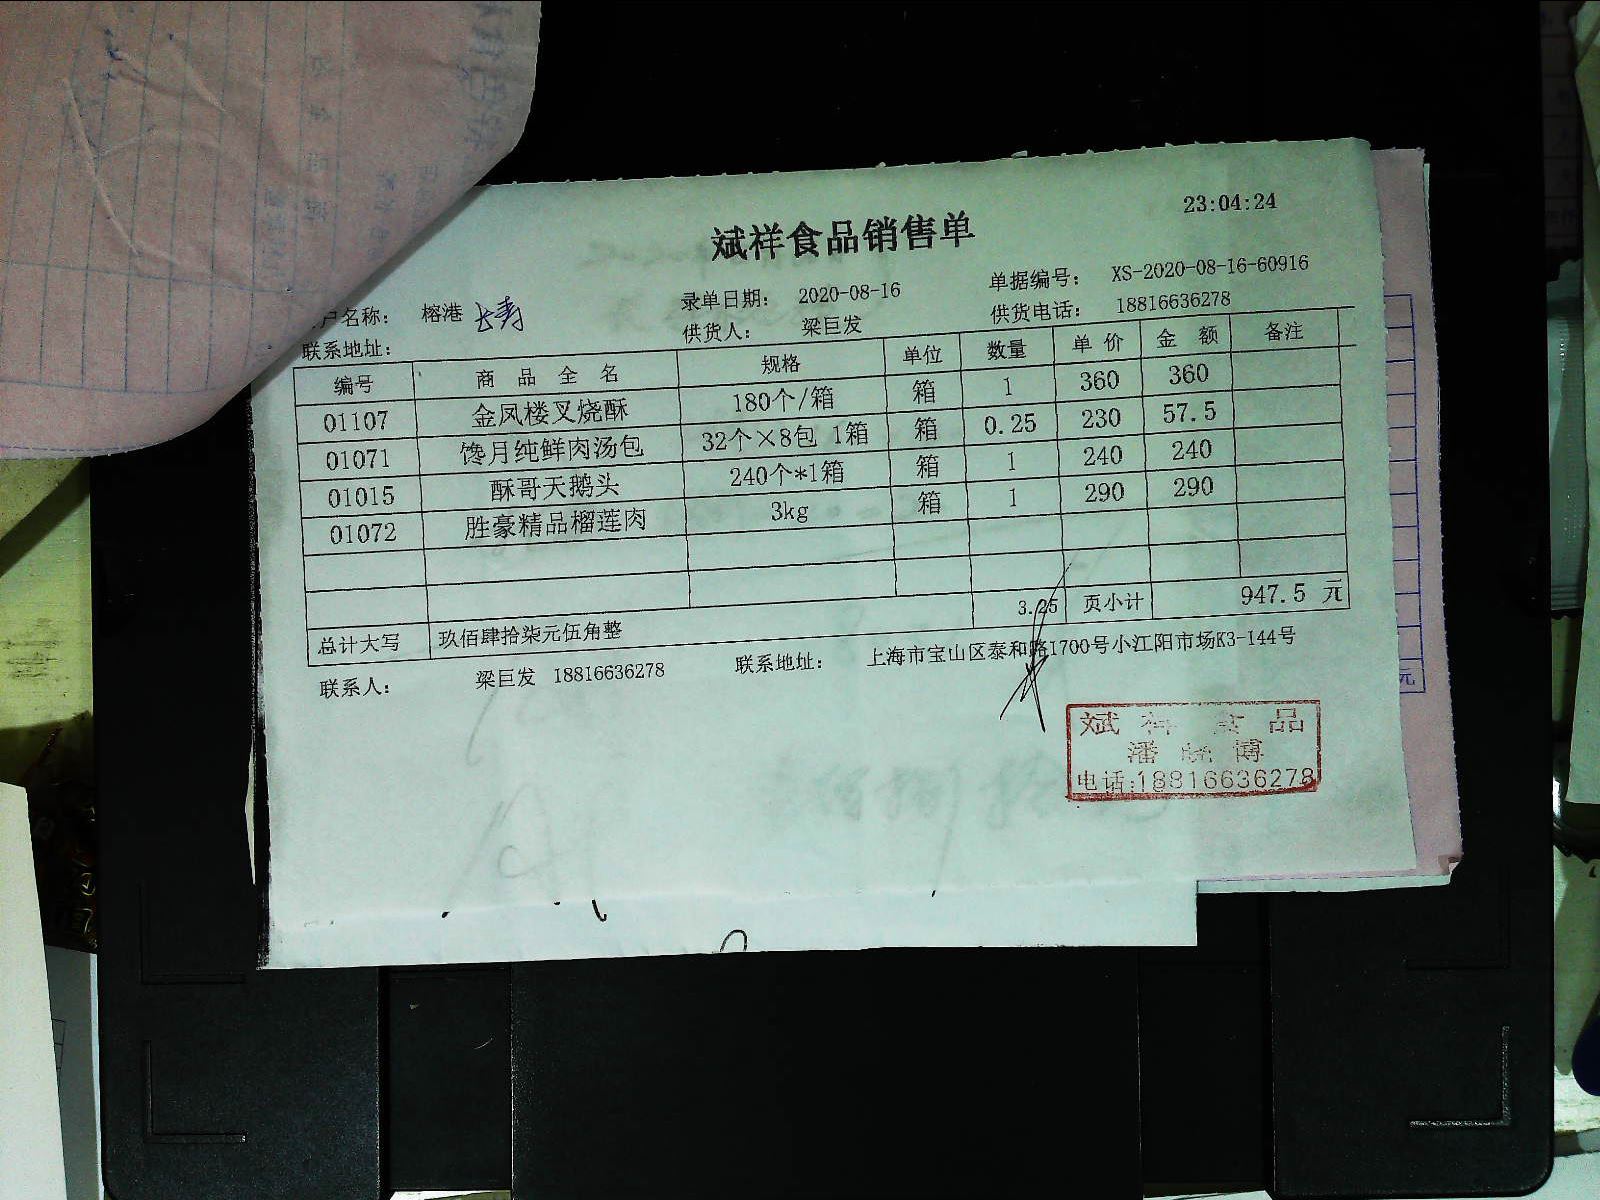 23:04:24
斌祥食品销售单
户名称: 榕港 长寿 录单日期: 2020-08-16 单据编号: XS-2020-08-16-60916
联系地址: 供货人: 梁巨发 供货电话: 18816636278
编号 商品全名 规格 单位 数量 单价 金额 备注
01107 金凤楼叉烧酥 180个/箱 箱 1 360 360
01071 馋月纯鲜肉汤包 32个×8包 1箱 箱 0.25 230 57.5
01015 酥哥天鹅头 240个*1箱 箱 1 240 240
01072 胜豪精品榴莲肉 3kg 箱 1 290 290
3.25 页小计 947.5 元
总计大写 玖佰肆拾柒元伍角整
联系人: 梁巨发 18816636278 联系地址: 上海市宝山区泰和路1700号小江阳市场K3-144号
斌祥食品
潘 博
电话:18816636278
元